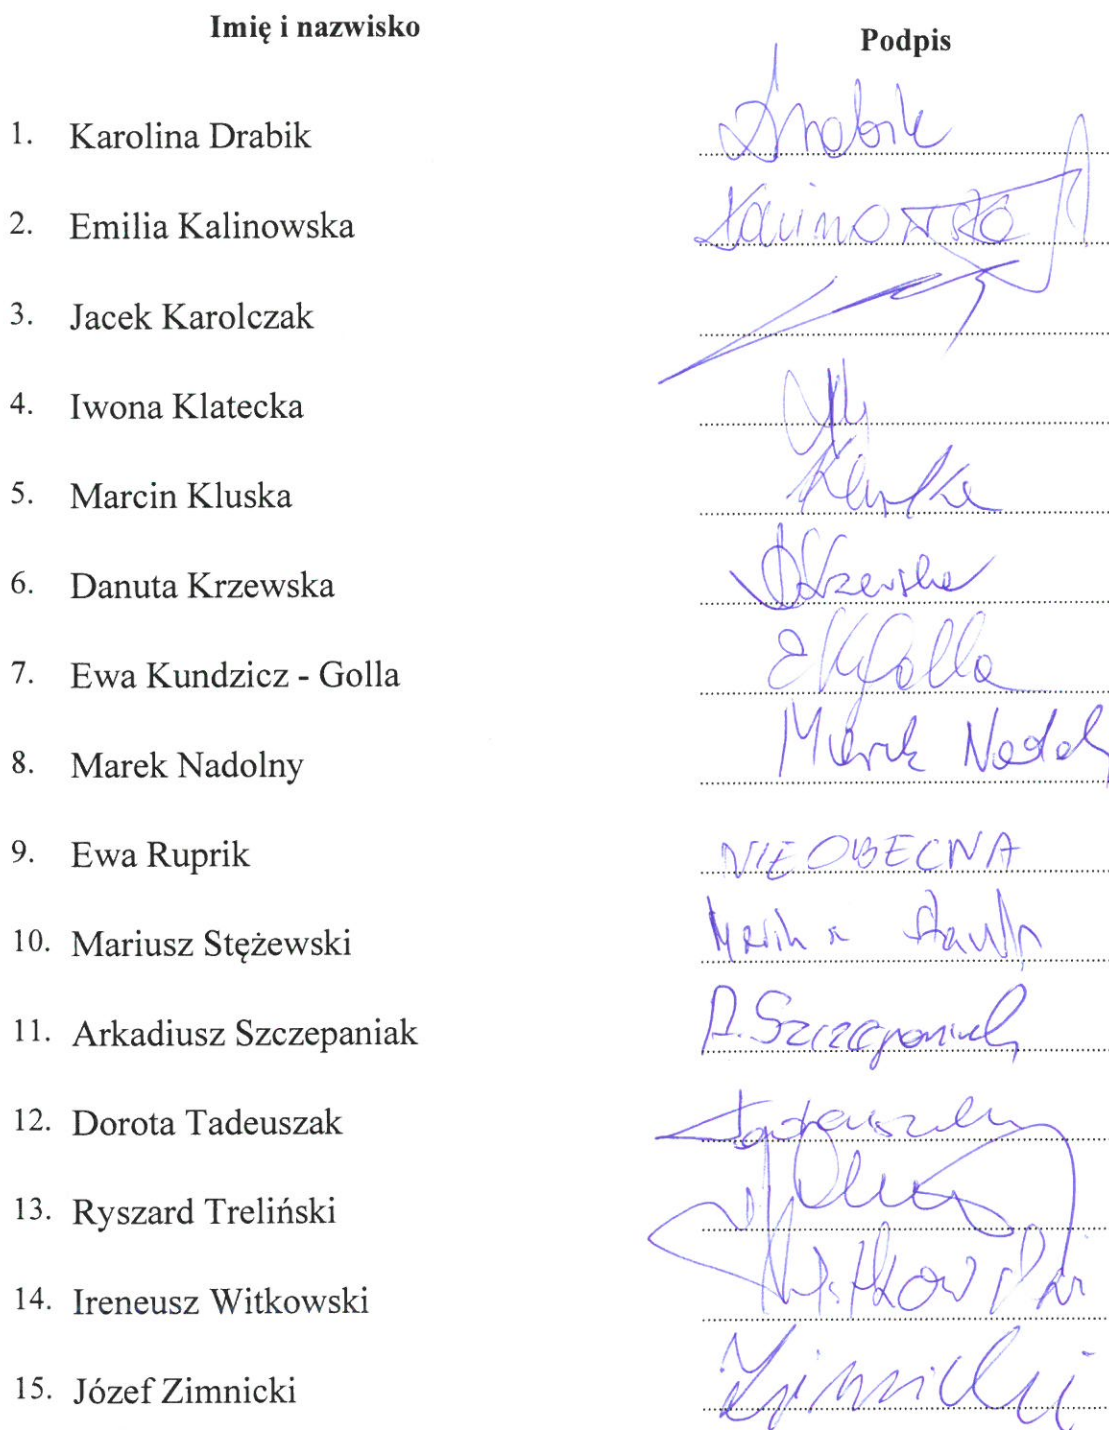 Imię i nazwisko Podpis
1. Karolina Drabik Drabik
2. Emilia Kalinowska Kalinowska
3. Jacek Karolczak
4. Iwona Klatecka
5. Marcin Kluska Kluska
6. Danuta Krzewska DKrzewska
7. Ewa Kundzicz - Golla EKGolla
8. Marek Nadolny Marek Nadol
9. Ewa Ruprik NIEOBECNA
10. Mariusz Stężewski
11. Arkadiusz Szczepaniak A. Szczepaniak
12. Dorota Tadeuszak Tadeuszak
13. Ryszard Treliński
14. Ireneusz Witkowski Witkowski
15. Józef Zimnicki Zimnicki